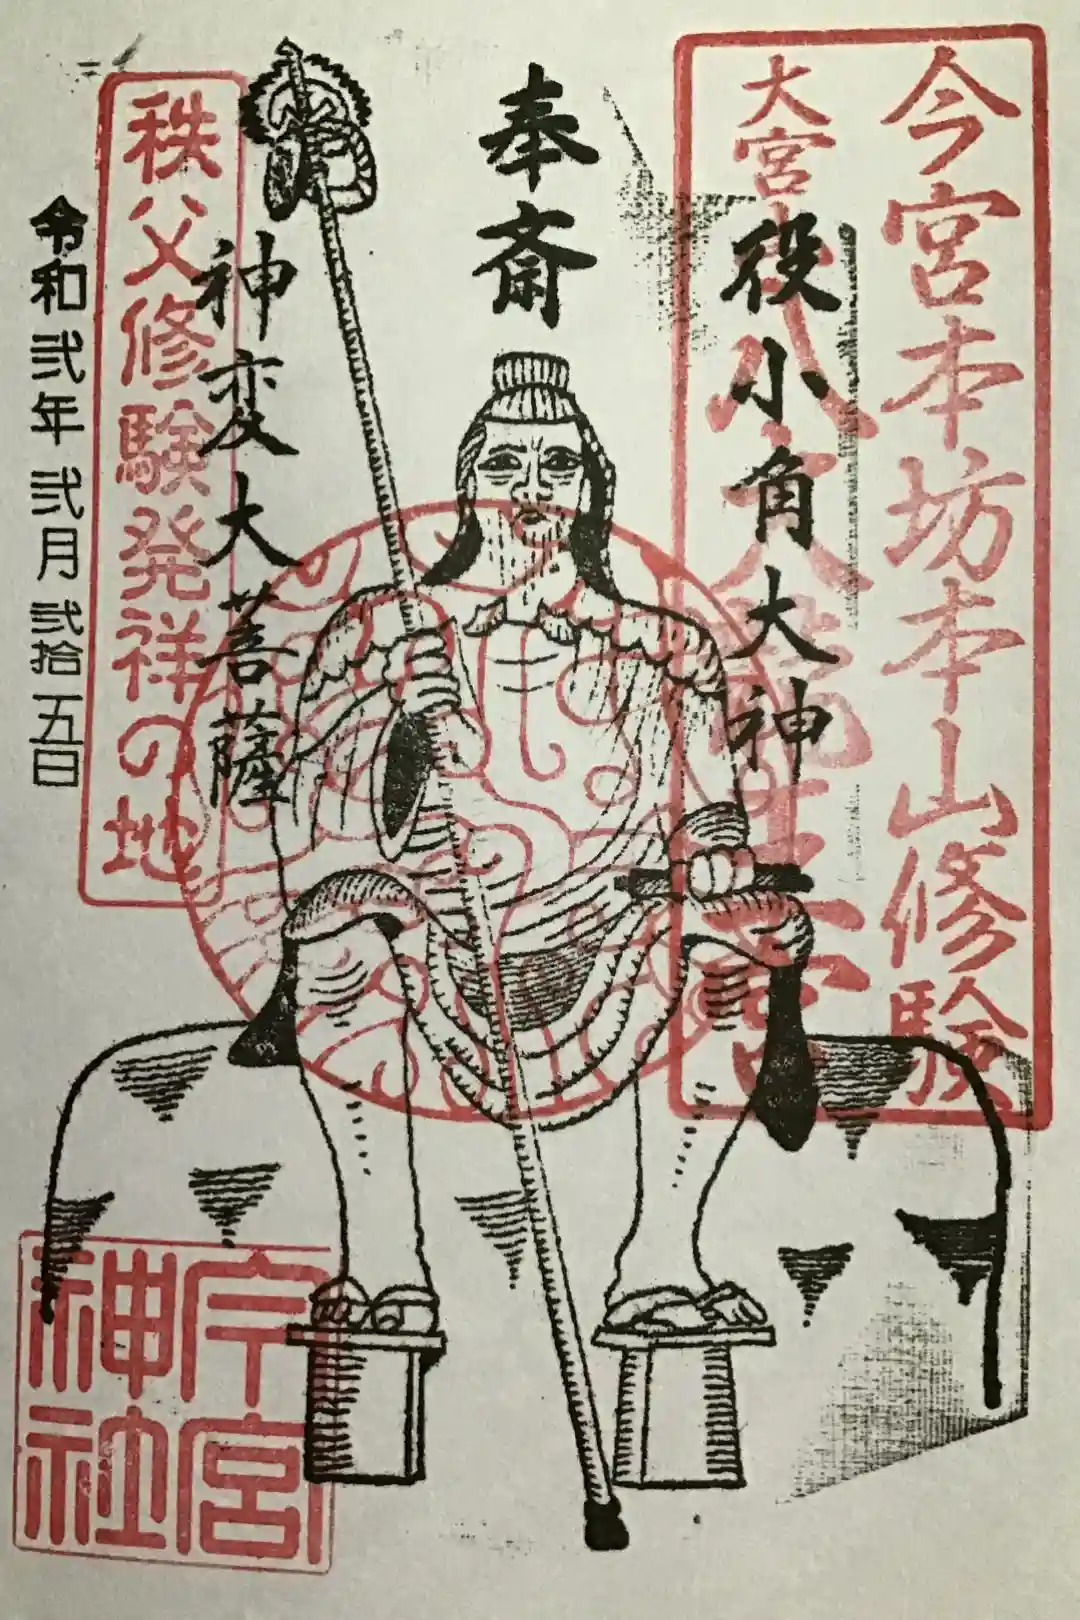 今宮本坊本山修験
大宮八大龍王宮
役小角大神
奉斎
神変大菩薩
秩父修験発祥の地
令和弐年弐月弐拾五日
今宮
神社